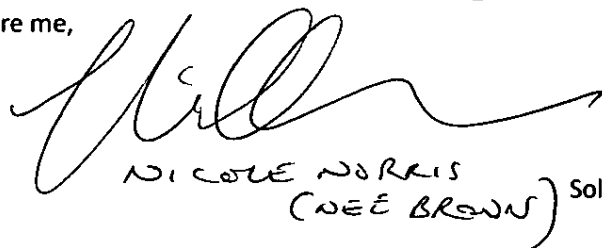 re me,
NICOLE NORRIS
(NEÉ BROWN) Sol